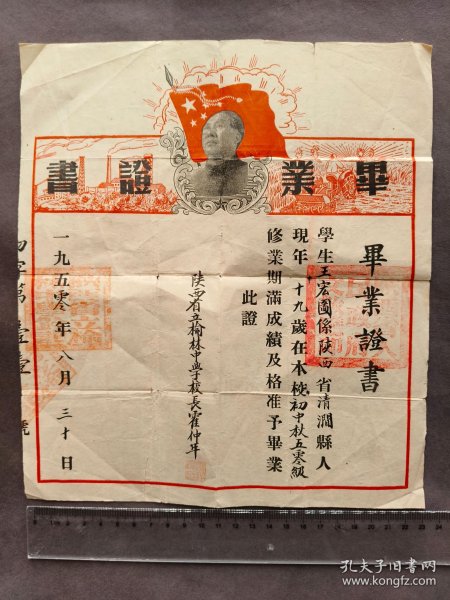 畢業證書
畢業證書
學生王宏圖係陝西省清澗縣人
現年十九歲在本校初中秋五零級
修業期滿成績及格准予畢業
此證
陕西省立榆林中學校長霍仲年
一九五零年八月三十日
號
孔夫子旧书网
www.kongfz.com